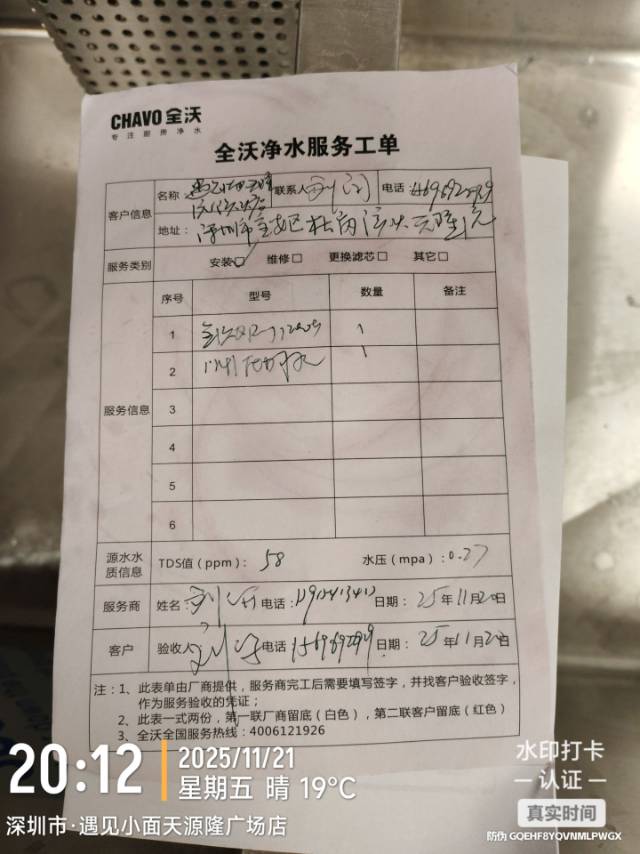 CHAVO 全沃
专注厨房净水
全沃净水服务工单
客户信息 名称 联系人 电话:
地址: 深圳市宝安区
服务类别 安装☑ 维修□ 更换滤芯□ 其它□
服务信息 序号 型号 数量 备注
1 1
2 1
3
4
5
6
源水水质信息 TDS值(ppm): 58 水压(mpa):0.27
服务商 姓名: 电话: 日期: 25年11月20日
客户 验收人 电话 日期: 25年11月20日
注:1、此表单由厂商提供,服务商完工后需要填写签字,并找客户验收签字,
作为服务验收的凭证;
2、此表一式两份,第一联厂商留底(白色),第二联客户留底(红色)
3、全沃全国服务热线:4006121926
20:12
2025/11/21
星期五 晴 19℃
深圳市·遇见小面天源隆广场店
水印打卡
认证
真实时间
防伪 GQEHF8YQVNMLPWGX